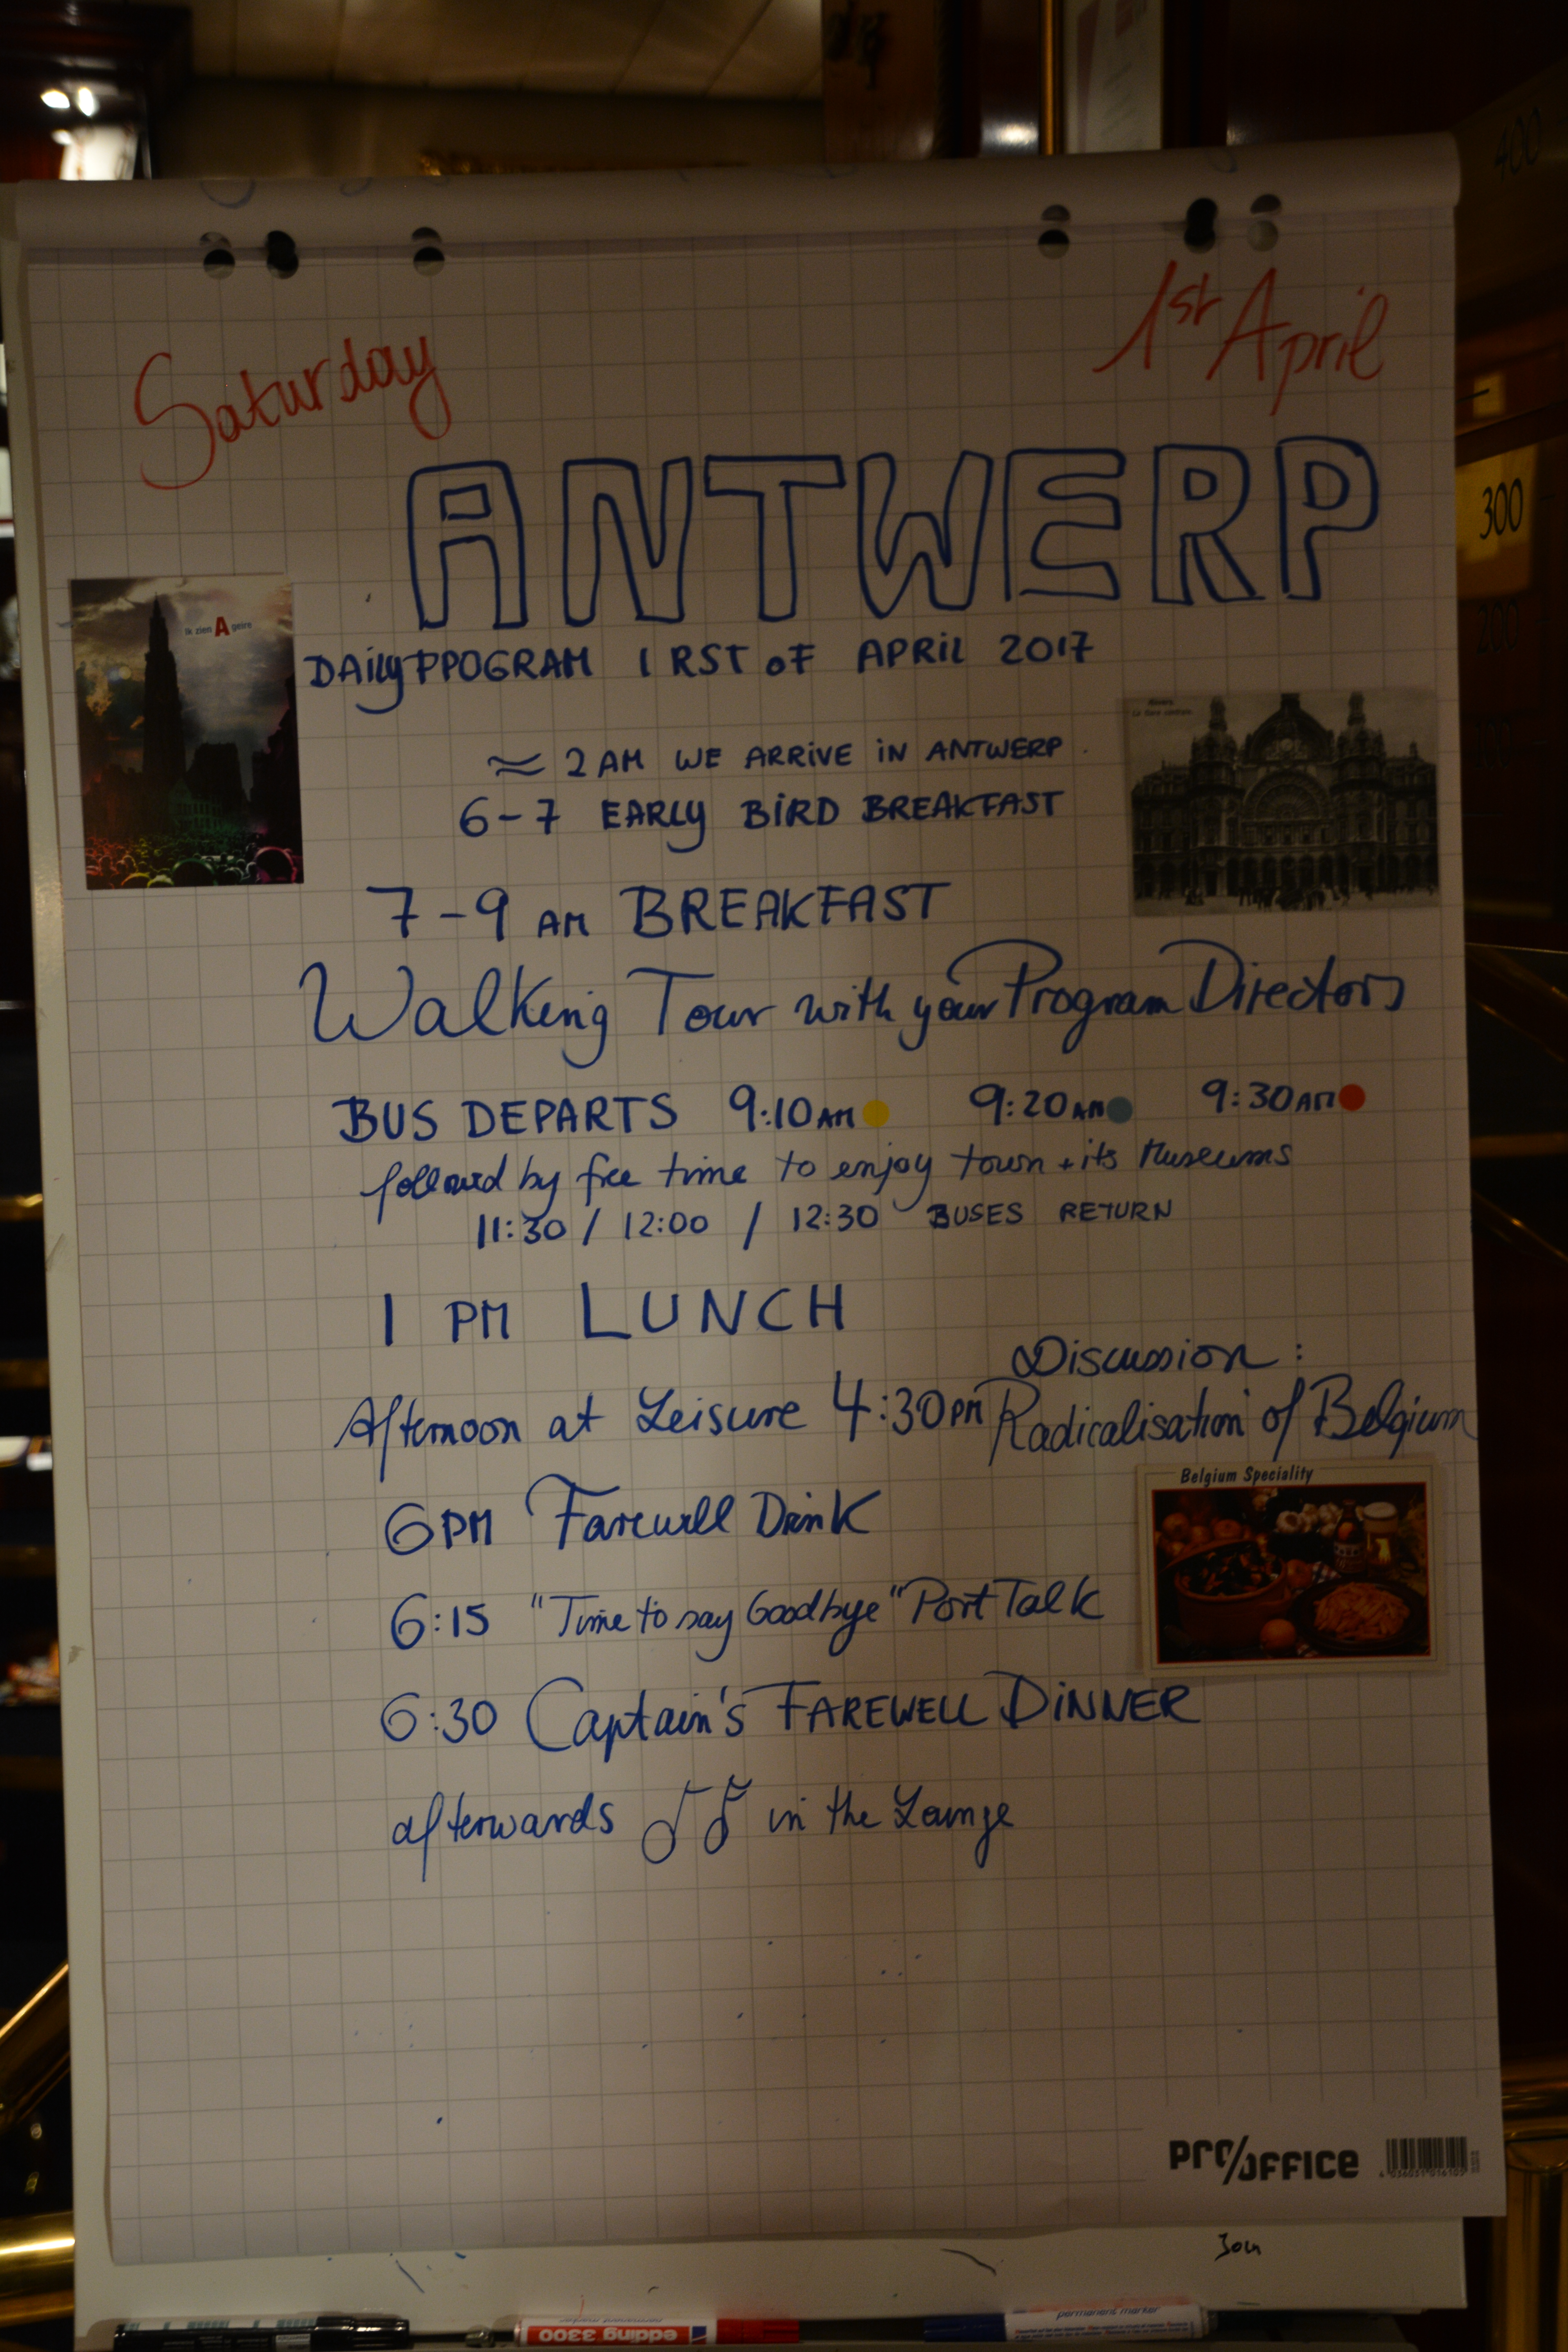 Saturday
1st April
ANTWERP
Ik zien A geire
DAilyPPOGRAM 1 RST oF APRiL 2017
≈ 2 AM WE ARRIVE iN ANTWERP
6-7 EARLY BiRD BREAKFAST
7-9 AM BREAKFAST
Walking Tour with your Program Directors
BUS DEPARTS 9:10 AM 9:20 AM 9:30 AM
followed by free time to enjoy town + its Museums
11:30 / 12:00 / 12:30 BUSES RETURN
1 PM LUNCH
Discussion :
Afternoon at Leisure 4:30 PM Radicalisation of Belgium
Belgium Speciality
6 PM Farewell Drink
6:15 "Time to say Goodbye" Port Talk
6:30 Captain's FAREWELL DiNNER
afterwards in the Lounge
PRO/OFFICE
edding 3300
permanent marker
400
300
200